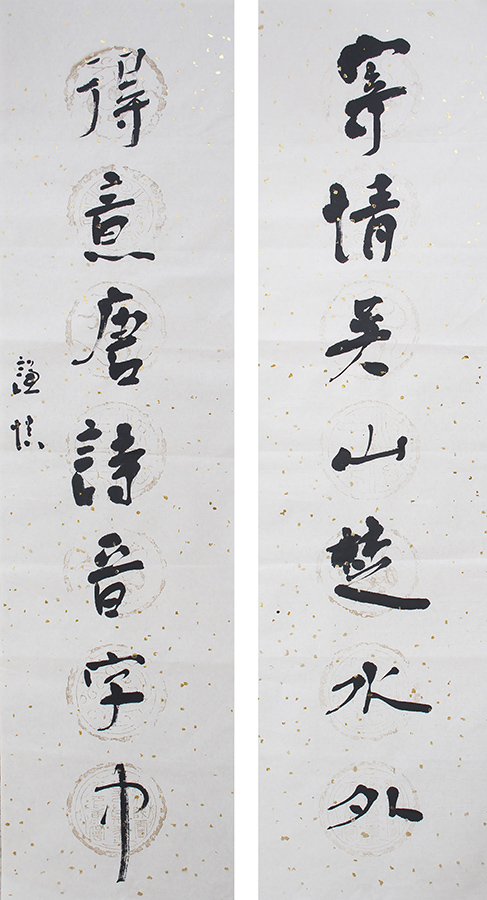 寄情吴山楚水外
得意唐詩晋字中
謙慎